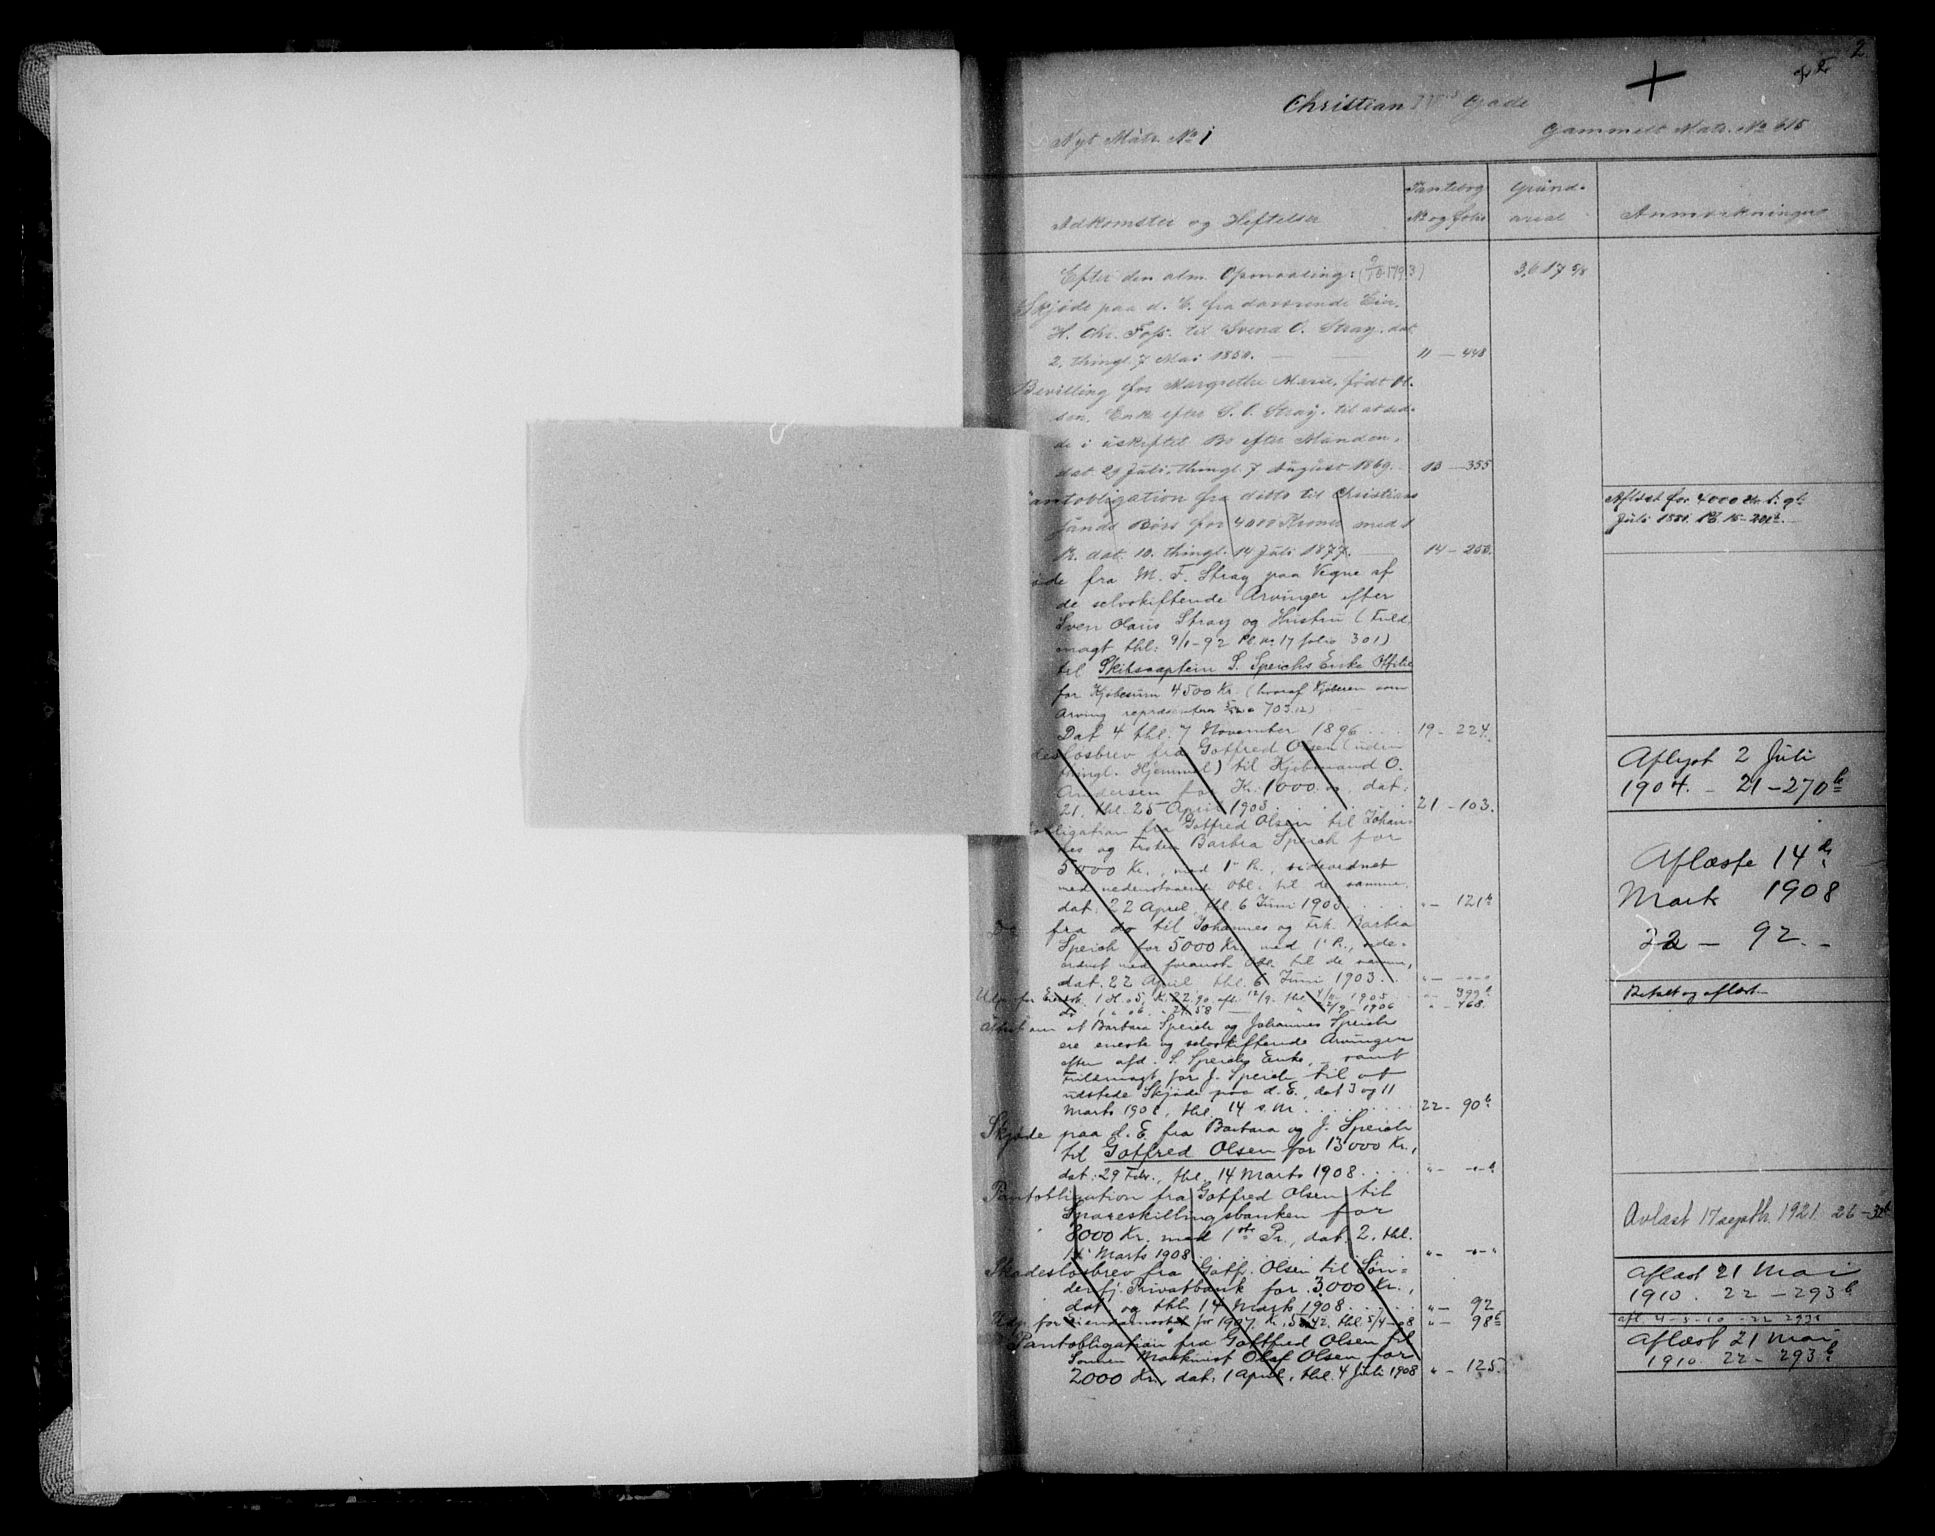 2
Christian IVs Gade
Nyt Matr. No 1
Gammelt Matr. No 615
Adkomster og Heftelser
Pantebog
No og folio
Grund-
areal
Anmærkninger
Efter den alm. Opmaaling: 3,617
Skjøde paa d. E. fra daværende Eier,
H. Chr. Foss. til Svend O. Stray. dat.
2. thingl. 7 Mai 1850. 11 — 448
Bevilling for Margrethe Marie, født Ol-
sen, Enke efter S. O. Stray. til at sid-
de i uskiftet Bo efter Manden,
dat. 29 Juli, thingl. 7 August 1869. 13 — 355
Pantobligation fra ditto til Christian-
sands Børs for 4000 Kroner med 1
Pr. dat. 10. thingl. 14 Juli 1877. 14 — 250.
Aflæst for 4000 Kr
Juli 1881. Pb. 15-
fra M. F. Stray paa Vegne af
de selvskiftende Arvinger efter
Sven Olaus Stray og Hustru (Fuld-
magt thl: 9/1-92 Pb. No 17 folio 301)
til Skibscaptein S. Speichs Enke
for Kjøbesum 4500 Kr. (hvoraf Kjøberen som
Arving repræsenterer 703.12)
Dat. 4 thl. 7 November 1896 19 - 224.
løsbrev fra Gotfred Olsen (uden
thingl. Hjemmel) til Kjøbmand O.
Andersen for Kr. 1000.00, dat:
21, thl. 25 April 1903. 21 - 103.
Aflyst 2 Juli
1904. - 21 - 270b
obligation fra Gotfred Olsen til Johan-
nes og Frøken Barbra Speich for
5000 Kr., med 1' Pr., sideordnet
med nedenstaaende Obl. til de samme,
dat. 22 April, thl. 6 Juni 1903. " - 121b
Aflæste 14de
Marts 1908
22 - 92. -
Do fra do til Johannes og Frk. Barbra
Speich for 5000 Kr. med 1' Pr., side-
ordnet med foranst. Obl. til de samme,
dat. 22 April thl. 6 Juni 1903. " - - " -
1905 " - 399b
Betalt og aflæst
1906 " - 468.
Attest om at Barbara Speich og Johannes Speich
ere eneste og selvskiftende Arvinger
efter afd. S. Speichs Enke, - samt
Fuldmagt for J. Speich til at
udstede Skjøde paa d. E., dat 3 og 11
Marts 1908, thl. 14 s. M. 22 - 90b
Skjøde paa d. E. fra Barbara og J. Speich
til Gotfred Olsen for 13000 Kr.,
dat: 29 Febr., thl. 14 Marts 1908. " - - " -
Pantobligation fra Gotfred Olsen til
Spareskillingsbanken for
8000 Kr. med 1ste Pr., dat. 2. thl.
14' Marts 1908 " - - " - "
Avlæst 17 septb. 1921. 26 -
Skadesløsbrev fra Gotfr. Olsen til Søn-
denfj. Privatbank for 3000 Kr.,
dat. og thl. 14 Marts 1908. " - 92
Aflæst 21 Mai
1910. 22 - 293b
Udp. for Eiendomsskat for 1907. Kr. 58,42. thl. 5/4-08 " - 98b
afl. 4-5-10 - 22 293b
Pantobligation fra Gottfred Olsen til
Sønnen Maskinist Olaf Olsen for
2000 Kr., dat. 1 April, thl. 4 Juli 1908 " - 125.
Aflæst 21 Mai
1910 22 - 293b